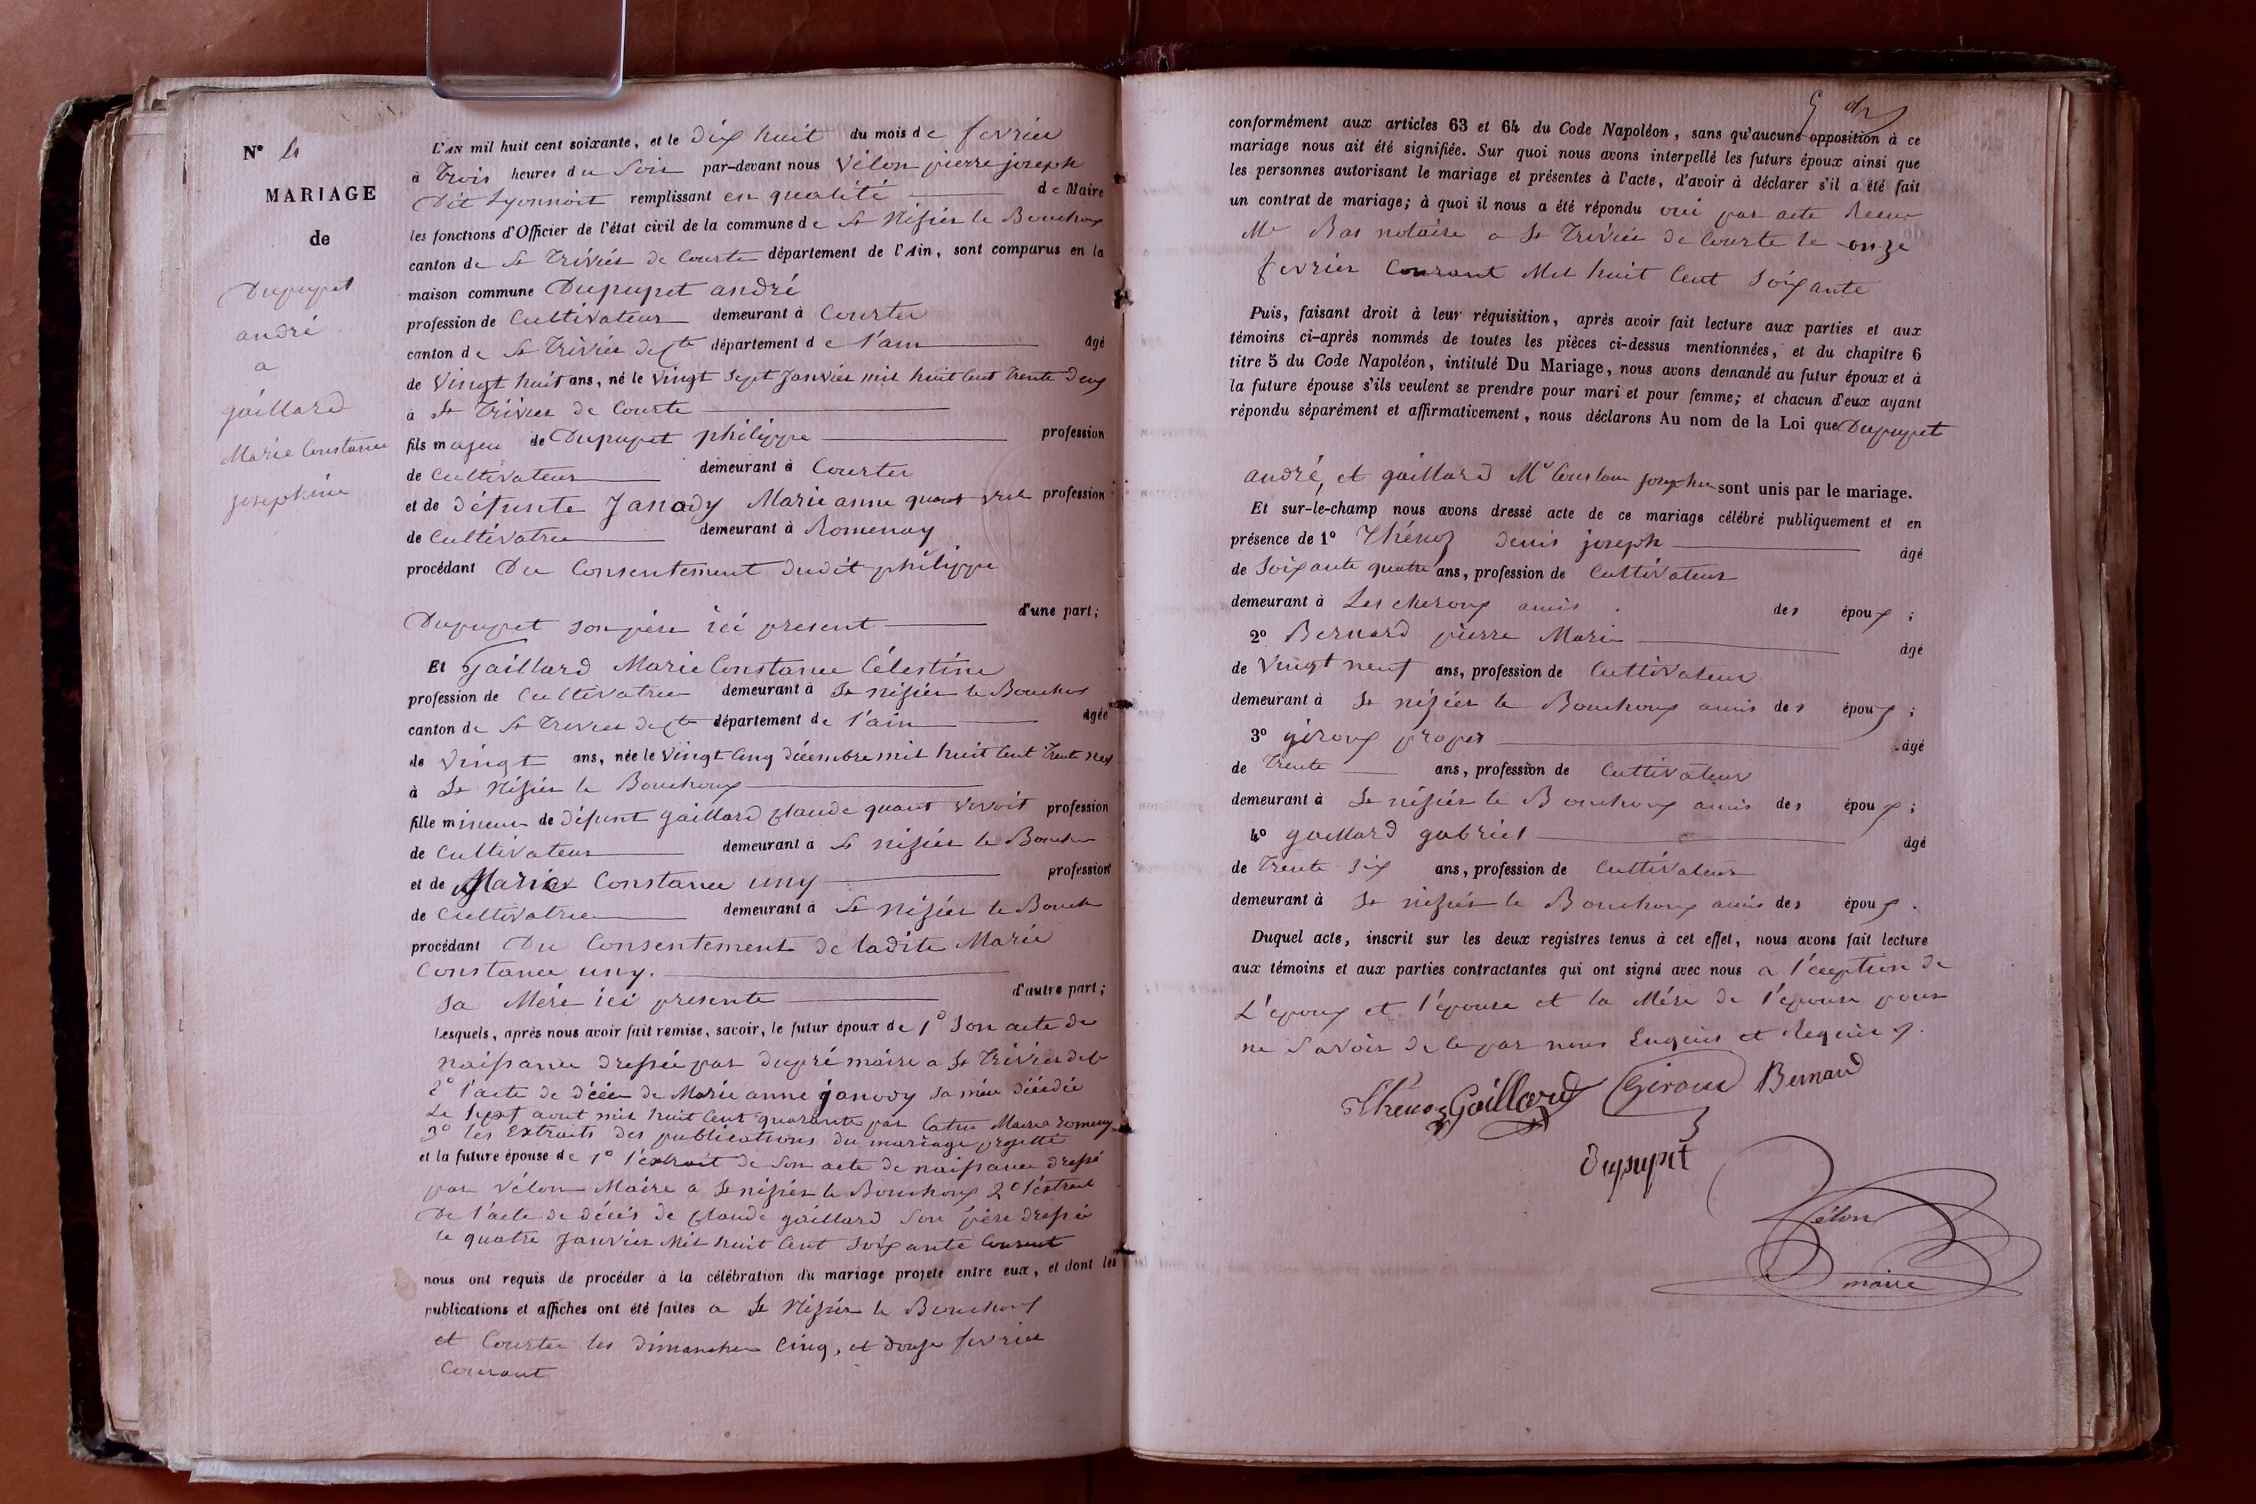 N° 4
MARIAGE
de
Dupupet
andré
a
gaillard
Marie Constance
josephine
L'AN mil huit cent soixante, et le dix huit du mois de fevrier
à trois heures du soir par-devant nous Vélon pierre joseph
dit Lyonnoit remplissant en qualité de Maire
les fonctions d'Officier de l'état civil de la commune de St Nizier le Bouchoux
canton de St Trivier de Courte département de l'Ain, sont comparus en la
maison commune Dupupet andré
profession de Cultivateur demeurant à Courter
canton de St Trivier de Cte département de l'ain âgé
de Vingt huit ans, né le Vingt Sept Janvier mil huit Cent trente deux
à St Trivier de Courte
fils majeu de Dupupet philippe profession
de Cultivateur demeurant à Courter
et de défunte Janody Marie anne quant profession
de Cultivatrice demeurant à Romenay
procédant Du Consentement dudit philippe
Dupupet son père ici present d'une part;
Et Gaillard Marie Constance Célestine
profession de Cultivatrice demeurant à St nizier le Bouchoux
canton de St trivier de Cte département de l'ain âgée
de Vingt ans, née le Vingt Cinq décembre mil huit Cent trente neuf
à St Nizier le Bouchoux
fille mineure de défunt gaillard Claude quant vivoit profession
de Cultivateur demeurant à St nizier le Bouchoux
et de Marie Constance uny profession
de Cultivatrice demeurant à St Nizier le Bouch
procédant Du Consentement de ladite Marie
Constance uny.
sa Mére ici presente d'autre part;
Lesquels, après nous avoir fait remise, savoir, le futur époux de 1° Son acte de
naissance dressée par dupré maire a St Trivier de Cte
2° l'acte de décés de Marie anne janody sa mère décédée
Le Sept aout mil huit Cent quarante par Maire romenay
3° les Extraits des publications du mariage projetté
et la future épouse de 1° l'éxtrait de Son acte de naissance dressé
par Vélon Maire a St nizier le Bouchoux 2° l'éxtrait
De l'acte de décés de Claude gaillard Son père dressée
le quatre Janvier Mil huit Cent Soixante Courant
nous ont requis de procéder à la célébration du mariage projeté entre eux, et dont les
publications et affiches ont été faites a St Nizier le Bouchoux
et Courter les dimanches Cinq, et douze fevrier
Courant
conformément aux articles 63 et 64 du Code Napoléon, sans qu'aucune opposition à ce
mariage nous ait été signifiée. Sur quoi nous avons interpellé les futurs époux ainsi que
les personnes autorisant le mariage et présentes à l'acte, d'avoir à déclarer s'il a été fait
un contrat de mariage; à quoi il nous a été répondu oui par acte Recu
Me Bas notaire a St Trivier de Courte le onze
fevrier Courant Mil huit Cent Soixante
Puis, faisant droit à leur réquisition, après avoir fait lecture aux parties et aux
témoins ci-après nommés de toutes les pièces ci-dessus mentionnées, et du chapitre 6
titre 5 du Code Napoléon, intitulé Du Mariage, nous avons demandé au futur époux et à
la future épouse s'ils veulent se prendre pour mari et pour femme; et chacun d'eux ayant
répondu séparément et affirmativement, nous déclarons Au nom de la Loi que Dupupet
andré, et gaillard Me Constance josephine sont unis par le mariage.
Et sur-le-champ nous avons dressé acte de ce mariage célébré publiquement et en
présence de 1° Thénoz denis joseph âgé
de Soixante quatre ans, profession de Cultivateur
demeurant à Lescheroux amis des époux;
2° Bernard pierre Marie âgé
de Vingt neuf ans, profession de Cultivateur
demeurant à St nizier le Bouchoux amis des époux;
3° giroux proper âgé
de trente ans, profession de Cultivateur
demeurant à St nizier le Bouchoux amis des époux;
4° gaillard gabriel âgé
de trente six ans, profession de Cultivateur
demeurant à St nizier le Bouchoux amis des époux.
Duquel acte, inscrit sur les deux registres tenus à cet effet, nous avons fait lecture
aux témoins et aux parties contractantes qui ont signé avec nous a l'éception de
L'epoux et l'épouse et la Mére de l'epouse pour
ne Savoir de le par nous Enquis et Requis
Thénoz Gaillard Giroud Bernard
Dupupet
Vélon
maire